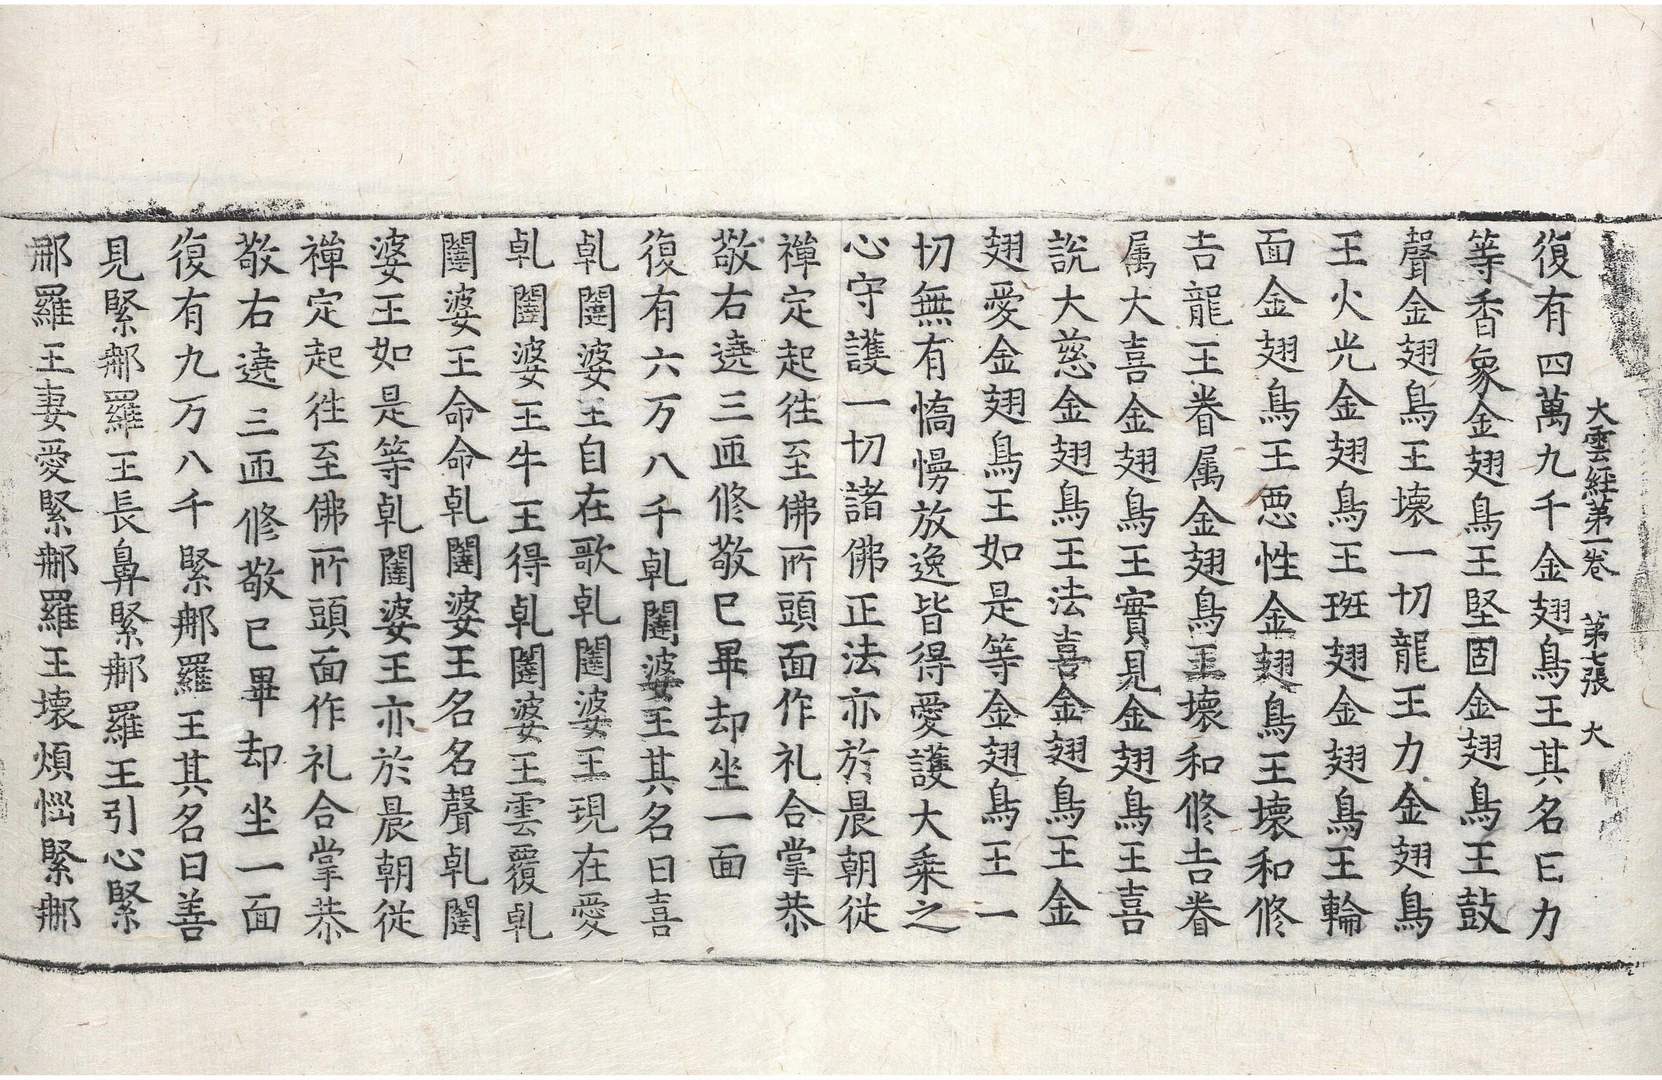 大雲経第一卷　第七張　大
復有四萬九千金翅鳥王其名曰力
等香象金翅鳥王堅固金翅鳥王鼓
聲金翅鳥王壞一切龍王力金翅鳥
王火光金翅鳥王斑翅金翅鳥王輪
面金翅鳥王悪性金翅鳥王壞和修
吉龍王眷属金翅鳥王壞和修吉眷
属大喜金翅鳥王實見金翅鳥王喜
說大慈金翅鳥王法喜金翅鳥王金
翅愛金翅鳥王如是等金翅鳥王一
切無有憍慢放逸皆得愛護大乗之
心守護一切諸佛正法亦於晨朝従
禅定起往至佛所頭面作礼合掌恭
敬右遶三迊修敬已畢却坐一面
復有六万八千乹闥婆王其名曰喜
乹闥婆王自在歌乹闥婆王現在愛
乹闥婆王牛王得乹闥婆王雲覆乹
闥婆王命命乹闥婆王名名聲乹闥
婆王如是等乹闥婆王亦於晨朝従
禅定起往至佛所頭面作礼合掌恭
敬右遶三迊修敬已畢却坐一面
復有九万八千緊郍羅王其名曰善
見緊郍羅王長鼻緊郍羅王引心緊
郍羅王妻愛緊郍羅王壞煩惱緊郍